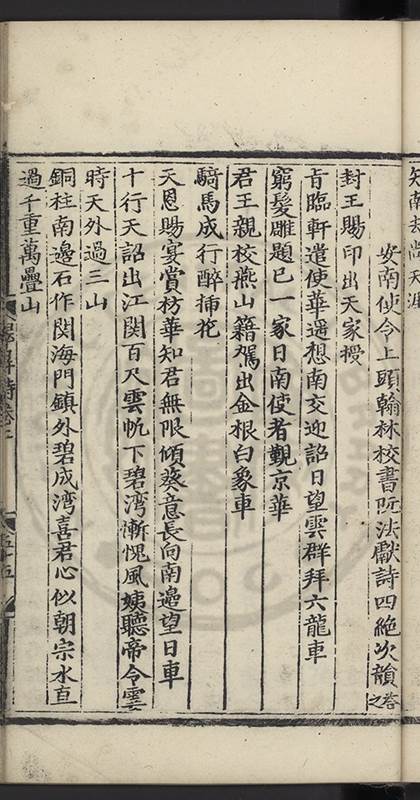 知南去尚天涯
安南使令上頭翰林校書阮法獻詩四絶次韻答之
封王賜印出天家授
肯臨軒遣使華遥想南交迎詔日望雲群拜六龍車
窮髮雕題已一家日南使者覲京華
君王親校燕山籍駕出金根白象車
騎馬成行醉挿花
天恩賜宴賞枋華知君無限傾葵意長向南邉望日車
十行天詔出江関百尺雲帆下碧湾慚愧風姨聽帝令雲
時天外過三山
銅柱南邉石作関海門鎮外碧成湾喜君心似朝宗水直
過千重萬疊山
詩卷二
五十五